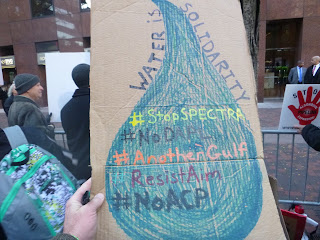 WATER IS
SOLIDARITY
#StopSPECTRA
#NoDAPL
#AnotherGulf
ResistAim
#NoACP